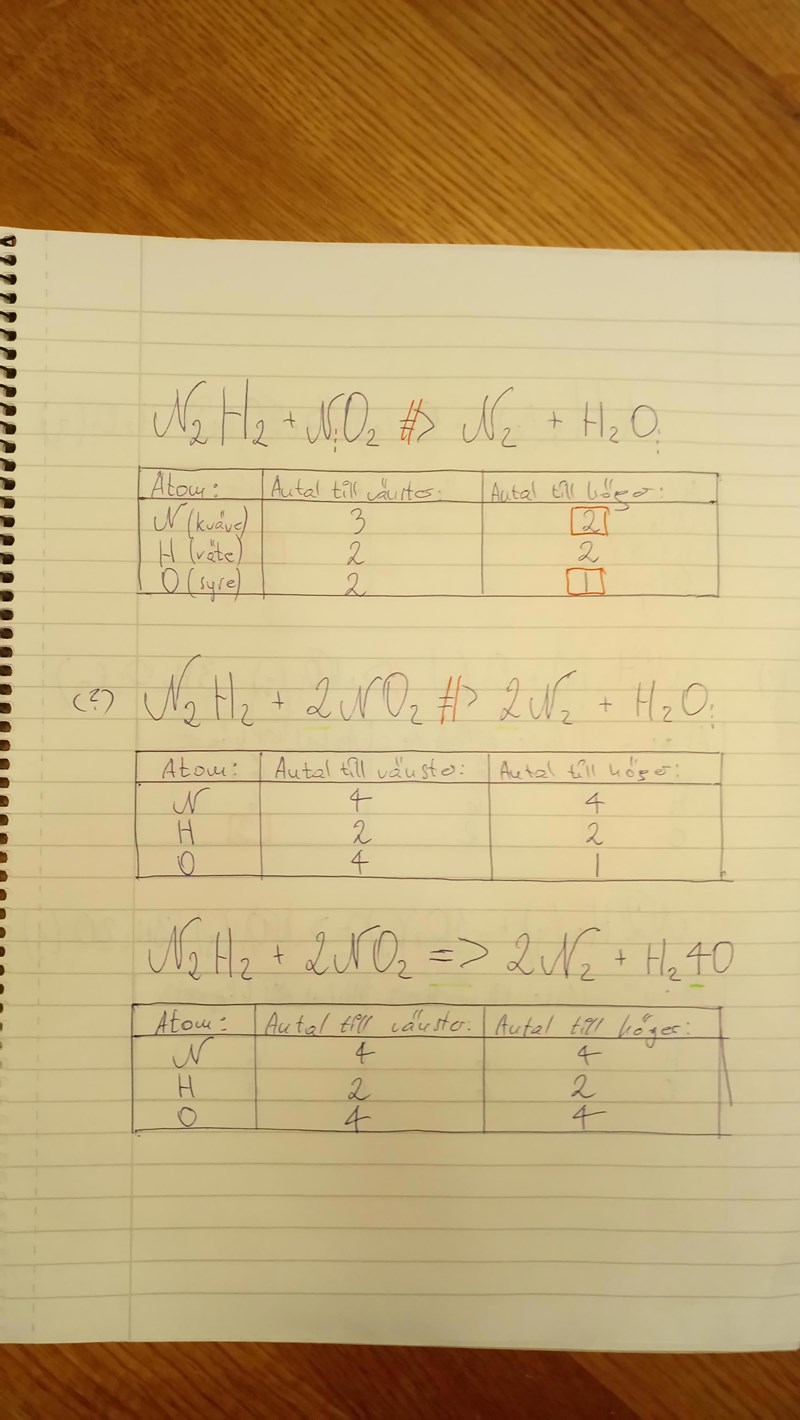 N₂H₂ + NO₂ ≠> N₂ + H₂O
Atom: Antal till vänster: Antal till höger:
N (kväve) 3 2
H (väte) 2 2
O (syre) 2 1
(?) N₂H₂ + 2NO₂ ≠> 2N₂ + H₂O
Atom: Antal till vänster: Antal till höger:
N 4 4
H 2 2
O 4 1
N₂H₂ + 2NO₂ => 2N₂ + H₂4O
Atom: Antal till vänster: Antal till höger:
N 4 4
H 2 2
O 4 4